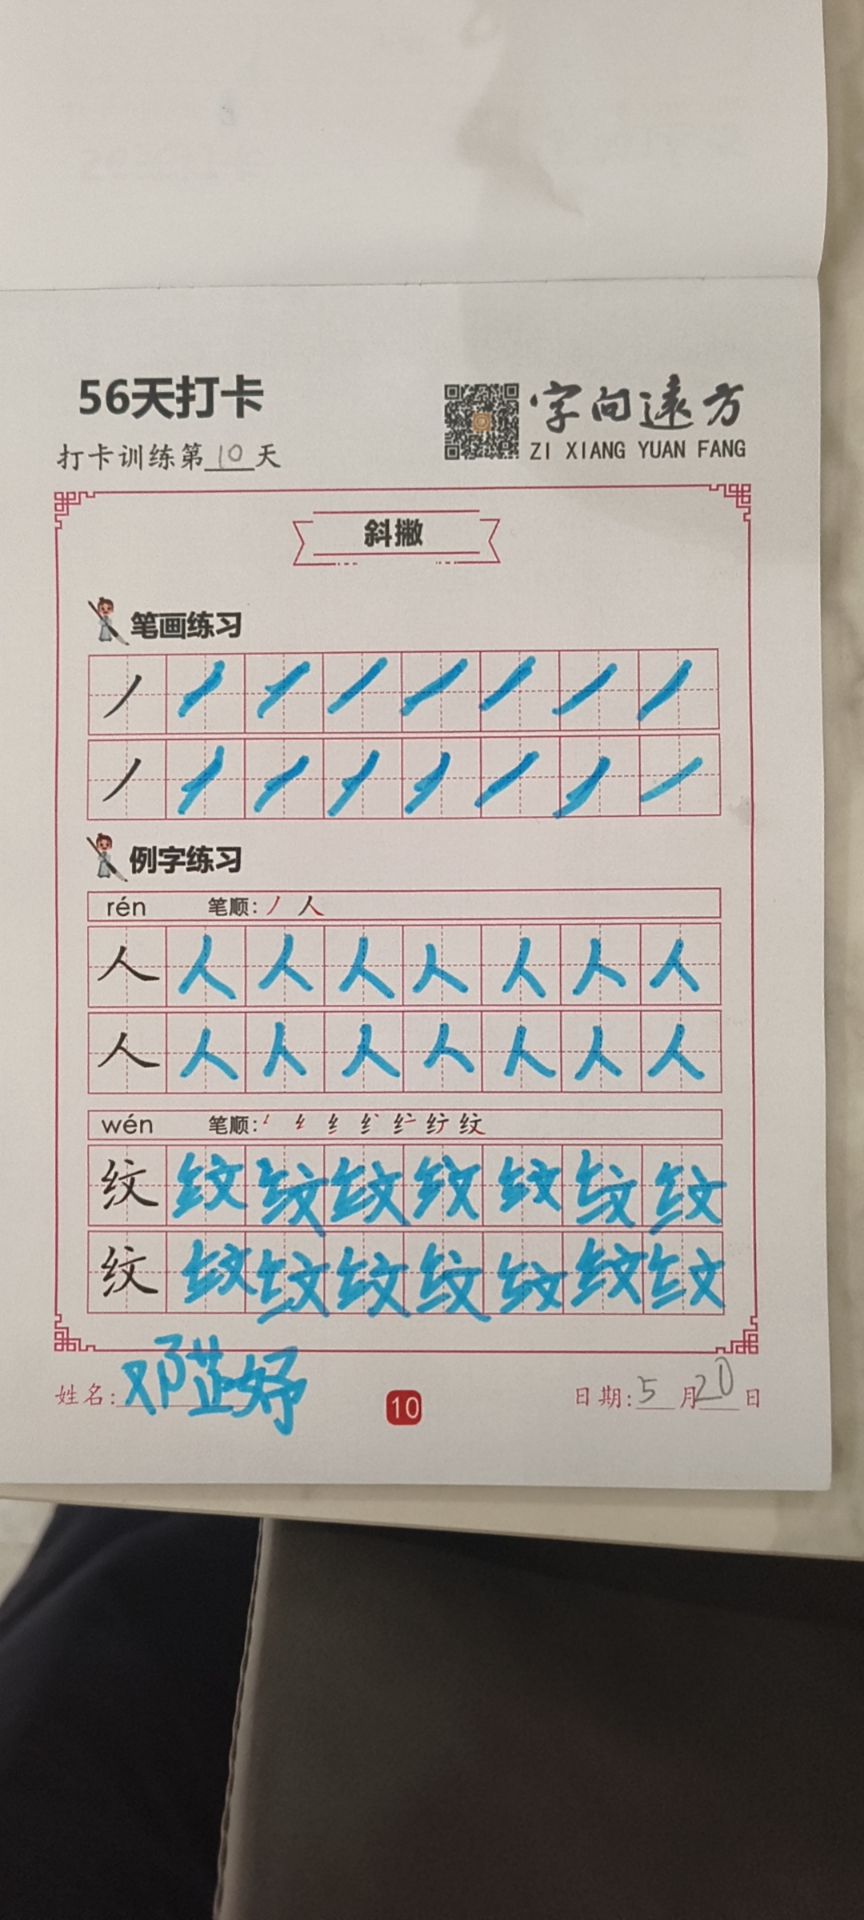 56天打卡
字向远方
打卡训练第10天
ZI XIANG YUAN FANG
斜撇
笔画练习
丿丿丿丿丿丿丿丿
丿丿丿丿丿丿丿丿
例字练习
rén 笔顺: 丿 人
人人人人人人人人
人人人人人人人人
wén 笔顺: 纹
纹纹纹纹纹纹纹纹
纹纹纹纹纹纹纹纹
姓名:邓芷妤 10 日期:5月20日